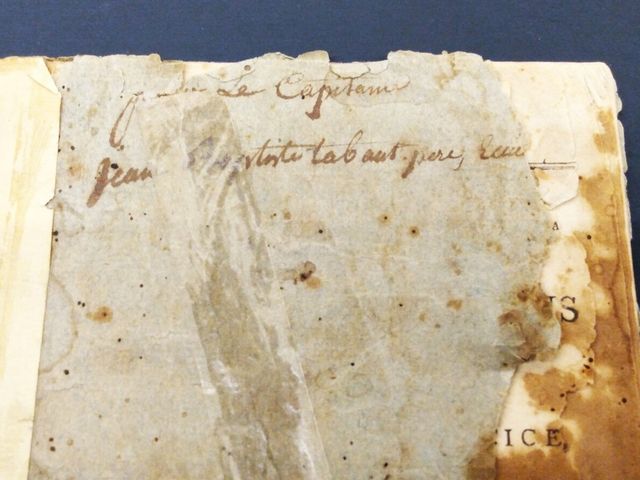 Le Capitaine
Jean Baptiste Labaut père, Ecui
A
NS
CICE,